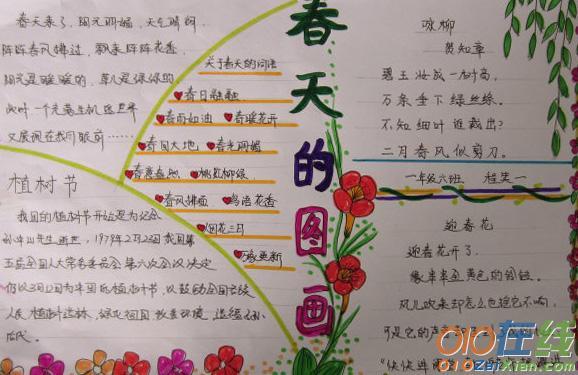 春天来了，阳光明媚，天气晴朗，
阵阵春风拂过，飘来阵阵花香，
阳光是暖暖的，草儿是绿绿的
又展现在我们眼前……
植树节
我国的植树节开始是为纪念
孙中山先生逝世，1979年2月23日我国第
五届全国人大常务委员会第六次会议决定
仍以3月12日为中国的植树节，以鼓励全国各族
人民植树造林，绿化祖国，改善环境，造福子孙
后代。
关于春天的词语
春日融融
春雨如油 春暖花开
春回大地 春光明媚
桃红柳绿
春风拂面 鸟语花香
烟花三月
春天的图画
咏柳
贺知章
碧玉妆成一树高，
万条垂下绿丝绦。
不知细叶谁裁出？
二月春风似剪刀。
一年级六班
迎春花
迎春花开了，
像串串金黄色的铃铛。
风儿吹来却怎么也摇它不响，
可是它的声音
010在线
010ZaiXian.com